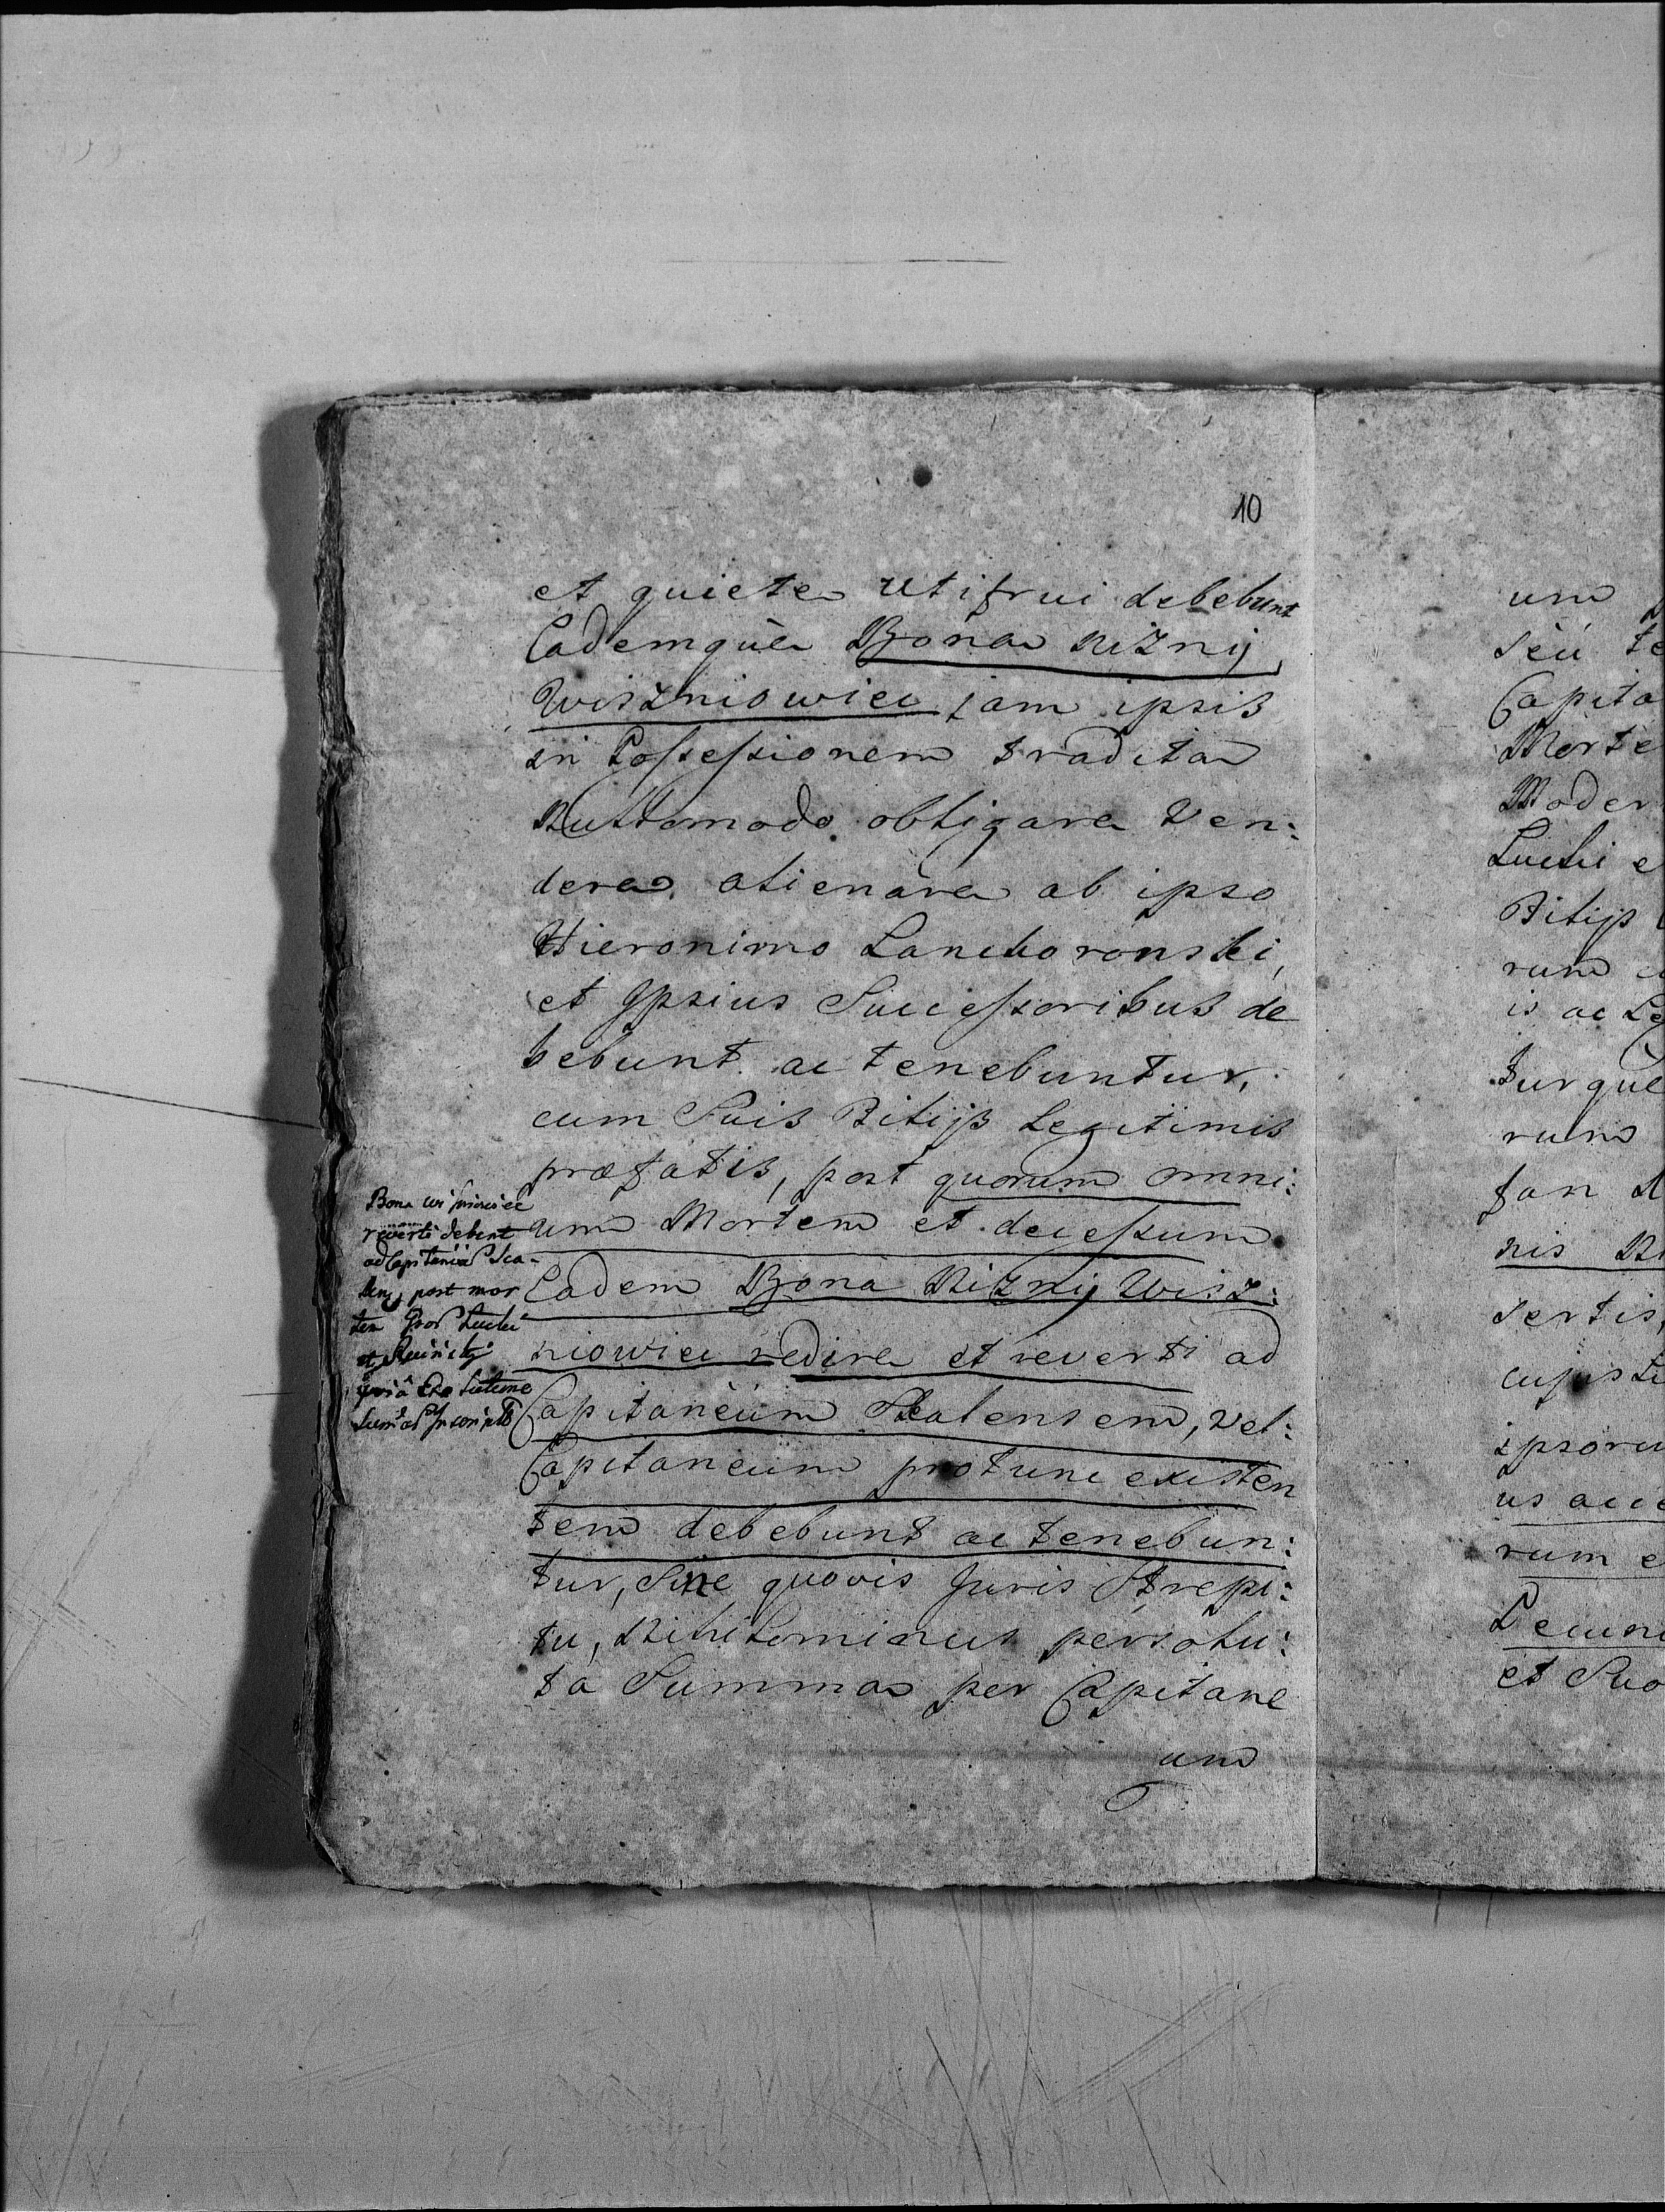 10
et quiete utifrui debebunt
Eademquè Bona Nizny
Wiszniowiec jam ipsis
in Possessionem tradita
Nullomodo obligare Ven:
dere, alienàre ab ipso
Hieronimo Lanckoronski,
et Ipsius Successoribus de
bebunt ac tenebuntur,
cum Suis Filijs Legitimis
præfatis, post quorum omni:
um Mortem et decessum
Eadem Bona Nizny Wisz:
niowiec redire et reverti ad
Capitaneum Skalensem, vel:
Capitaneum protunc existen
tem debebunt ac tenebun:
tur, Sine quovis Juris Strepi:
tu, Nihilominus persolu:
ta Summa per Capitane
um
Bona
reverti debent
ad
post mor
tem
et
um
sèu te
Capita
Morte
Moder
Lucki e
Filijs
rum
is ac Le
turquè
rum
fan
nis Ni
sertis,
cujusli
ipsoru
us acce
rum e
Pecuni
et Suo